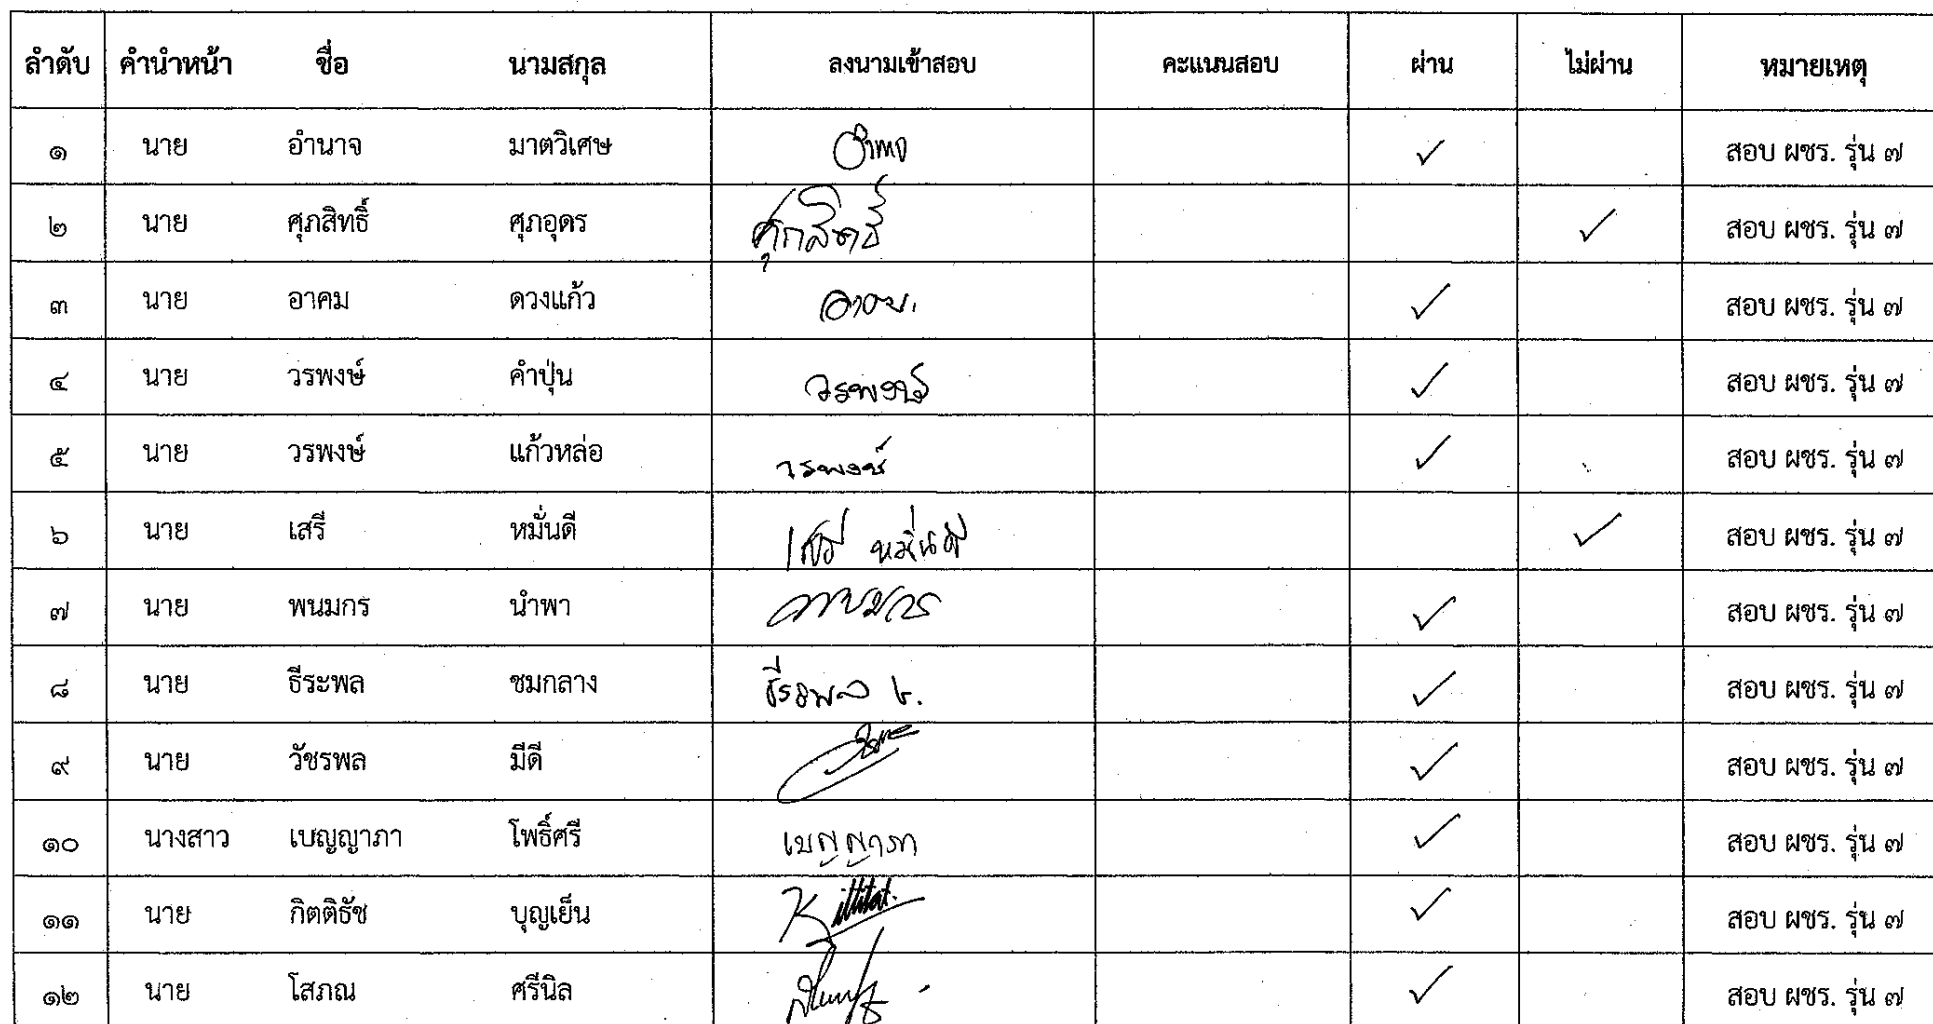 ลำดับ คำนำหน้า ชื่อ นามสกุล ลงนามเข้าสอบ คะแนนสอบ ผ่าน ไม่ผ่าน หมายเหตุ
๑ นาย อำนาจ มาตวิเศษ ✓ สอบ ผชร. รุ่น ๗
๒ นาย ศุภสิทธิ์ ศุภอุดร ศุภสิทธิ์ ✓ สอบ ผชร. รุ่น ๗
๓ นาย อาคม ดวงแก้ว อาคม. ✓ สอบ ผชร. รุ่น ๗
๔ นาย วรพงษ์ คำปุ่น วรพงษ์ ✓ สอบ ผชร. รุ่น ๗
๕ นาย วรพงษ์ แก้วหล่อ วรพงษ์ ✓ สอบ ผชร. รุ่น ๗
๖ นาย เสรี หมั่นดี เสรี หมั่นดี ✓ สอบ ผชร. รุ่น ๗
๗ นาย พนมกร นำพา พนมกร ✓ สอบ ผชร. รุ่น ๗
๘ นาย ธีระพล ชมกลาง ธีระพล ช. ✓ สอบ ผชร. รุ่น ๗
๙ นาย วัชรพล มีดี ✓ สอบ ผชร. รุ่น ๗
๑๐ นางสาว เบญญาภา โพธิ์ศรี เบญญาภา ✓ สอบ ผชร. รุ่น ๗
๑๑ นาย กิตติธัช บุญเย็น Kittitat. ✓ สอบ ผชร. รุ่น ๗
๑๒ นาย โสภณ ศรีนิล ✓ สอบ ผชร. รุ่น ๗